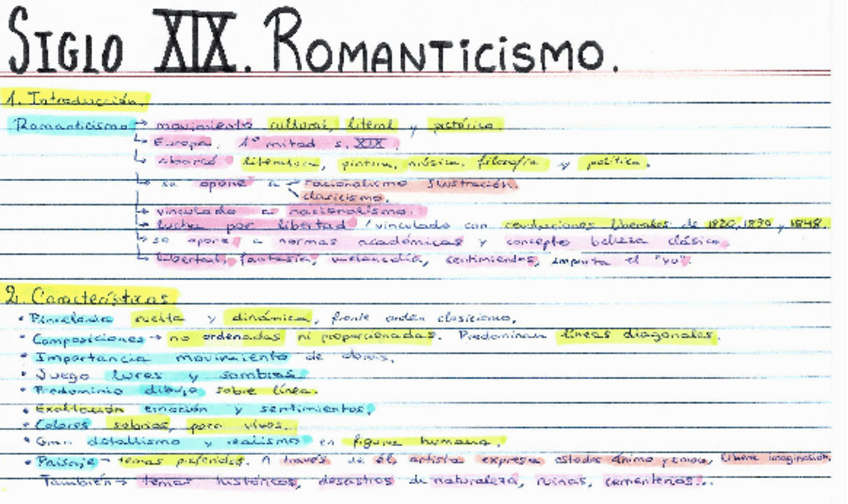 SIGLO XIX. ROMANTICISMO.
1. Introducción.
Romanticismo → movimiento cultural, literal y pictórico.
↳ Europa. 1ª mitad s. XIX.
↳ abarcó literatura, pintura, música, filosofía y política.
↳ se opone a racionalismo Ilustración.
clasicismo.
↳ vinculado a nacionalismo.
↳ lucha por libertad / vinculado con revoluciones liberales de 1820, 1830 y 1848.
↳ se opone a normas académicas y concepto belleza clásica.
↳ libertad, fantasía, melancolía, sentimientos, importa el "yo".
2. Características.
• Pincelada suelta y dinámica, frente orden clasicismo.
• Composiciones → no ordenadas ni proporcionadas. Predominan líneas diagonales.
• Importancia movimiento de obras.
• Juego luces y sombras.
• Predominio dibujo sobre línea.
• Exaltación emoción y sentimientos.
• Colores sobrios, poco vivos.
• Gran detallismo y realismo en figura humana.
• Paisaje → temas preferidos. A través de él, artista expresa estados ánimo y emoc, libera imaginación.
También → temas históricos, desastres de naturaleza, ruinas, cementerios...